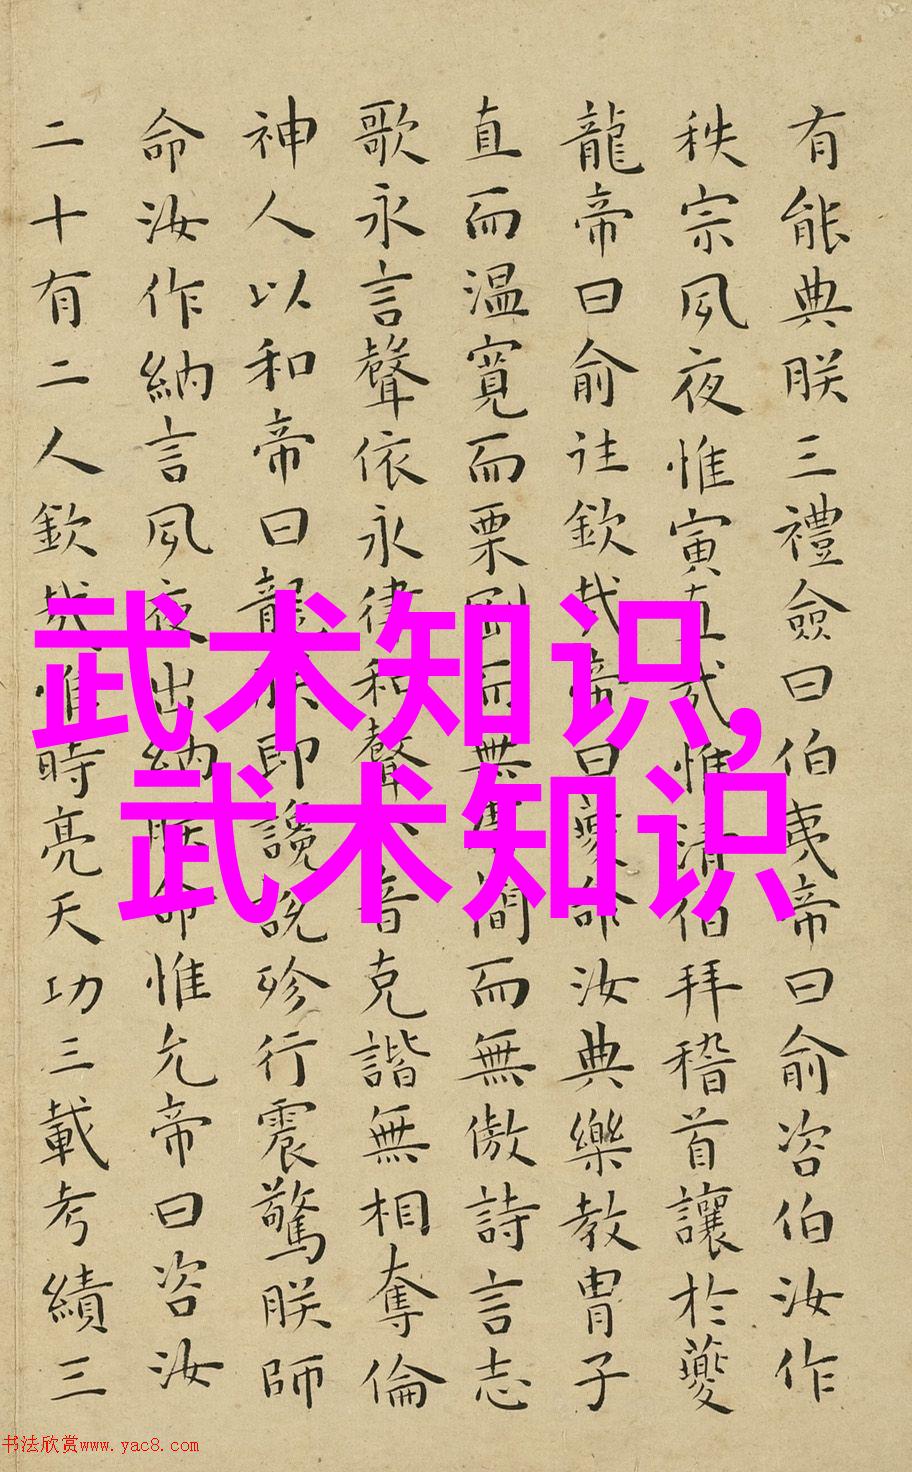 有能典朕三禮僉曰伯夷帝曰俞咨伯汝作
秩宗夙夜惟寅直哉惟清伯拜稽首讓於夔
龍帝曰俞往欽哉帝曰夔命汝典樂教胄子
直而温寬而栗剛而無虐簡而無傲詩言志
歌永言聲依永律和聲八音克諧無相奪倫
神人以和帝曰龍朕即讒說殄行震驚朕師
命汝作納言夙夜出納朕命惟允帝曰咨汝
二十有二人欽哉惟時亮天功三載考績三
武术知识,
武术知识
书法欣赏www.yac8.com